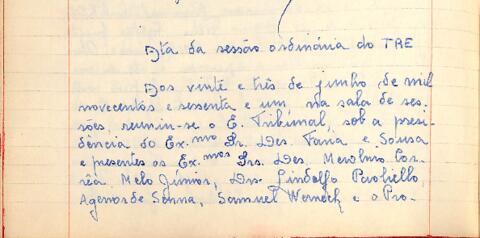 Ata da sessão ordinária do TRE
Aos vinte e três de junho de mil
novecentos e sessenta e um, na sala de ses-
sões, reuniu-se o E. Tribunal, sob a presi-
dência do Ex.mo Sr. Des. Faria e Sousa
e presentes os Ex.mos Srs. Des. Merolino Cor-
rêia, Melo Júnior, Drs. Lindolfo Paoliello,
Agenor de Senna, Samuel Werneck e o Pro-